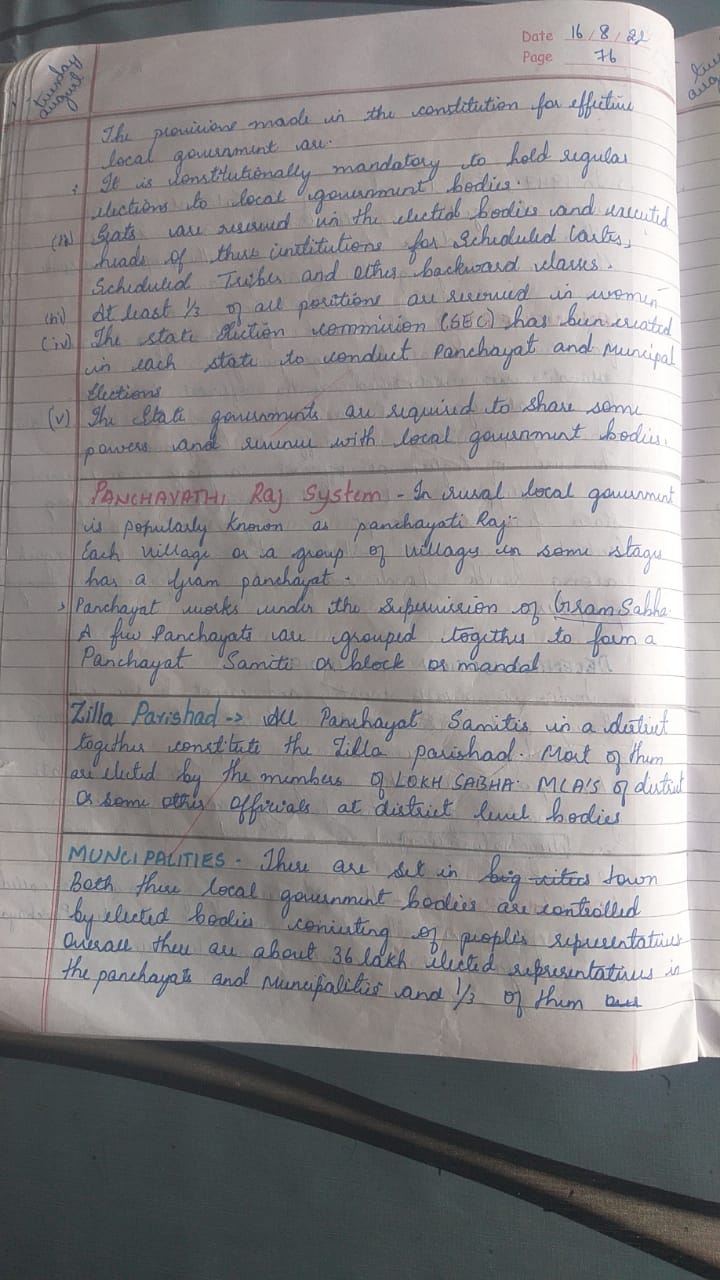 Date 16/8/22
Page 76
Tuesday
August
The provisions made in the constitution for effective
local government are:
It is constitutionally mandatory to hold regular
elections to local government bodies.
(ii) Seats are reserved in the elected bodies and executed
heads of these institutions for Scheduled Castes,
Scheduled Tribes and other backward classes.
(iii) At least 1/3 of all positions are reserved in women
(iv) The state Election commission (SEC) has been created
in each state to conduct Panchayat and Muncipal
Elections
(v) The State governments are required to share some
powers and revenue with local government bodies.
PANCHAYATHI Raj System - In rural local government
is popularly known as panchayati Raj:-
Each village or a group of villages in some stages
has a Gram panchayat.
Panchayat works under the supervision of Gram Sabha
A few Panchayats are grouped together to form a
Panchayat Samiti or block or mandal
Zilla Parishad -> All Panchayat Samitis in a district
together constitute the Zilla parishad. Most of them
are elected by the members of LOKH SABHA. MLA'S of district
or some other officials at district level bodies
MUNCIPALITIES - There are set in big cities town
Both these local government bodies are controlled
by elected bodies consisting of people's representatives
Overall there are about 36 lakh elected representatives in
the panchayats and Muncipalities and 1/3 of them